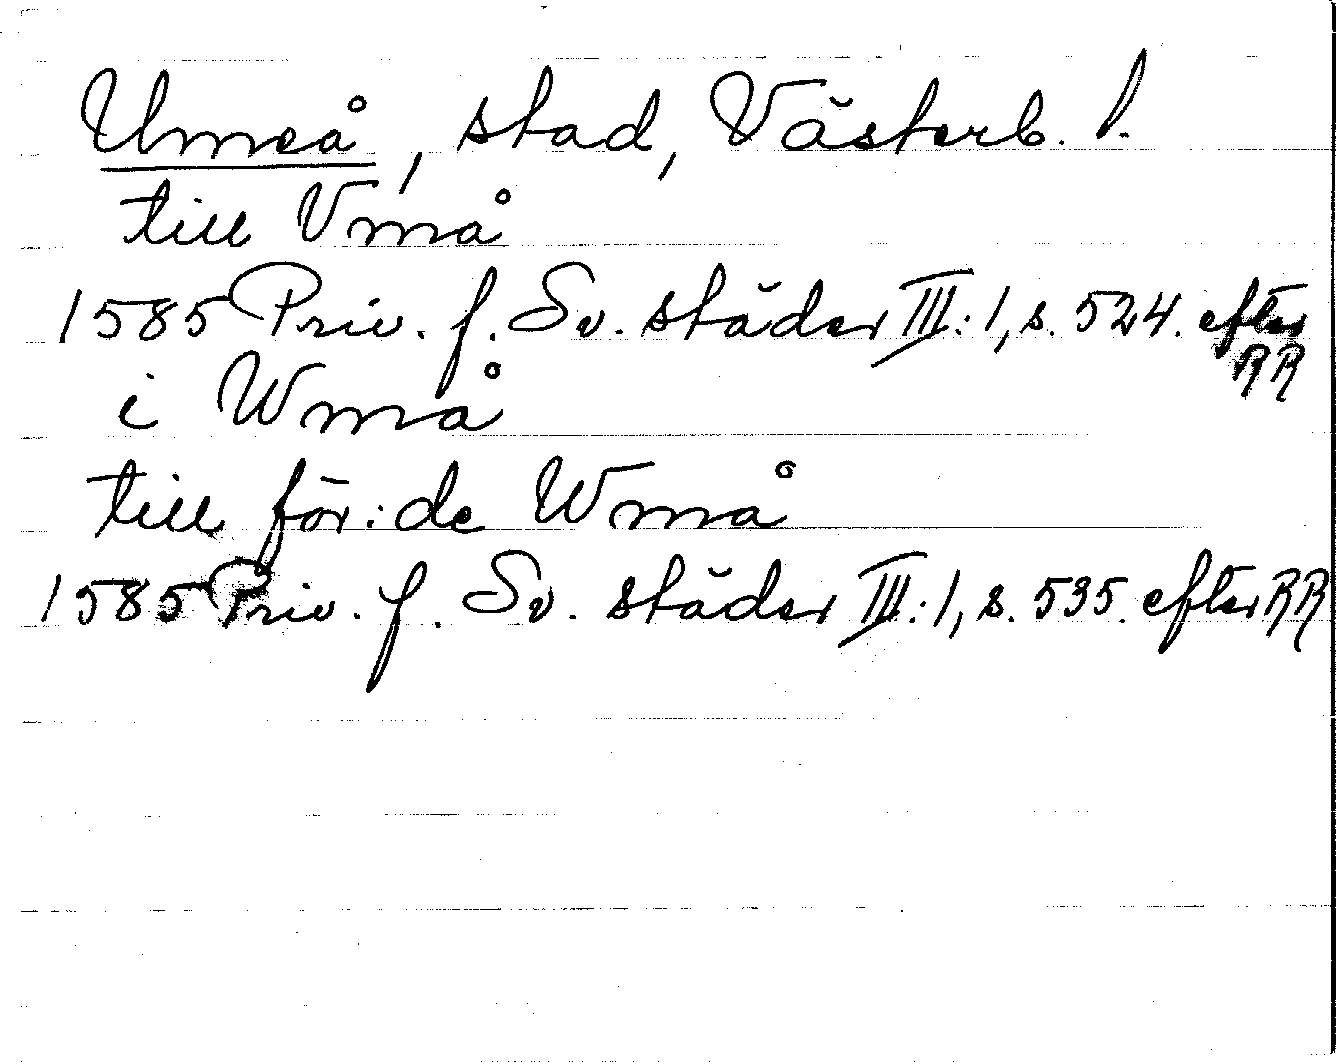 Umeå, stad, Västerb. l.
till Vmå
1585 Priv. f. Sv. städer III:1, s. 524. efter RR
i Wmå
till för:de Wmå
1585 Priv. f. Sv. städer III:1, s. 535. efter RR